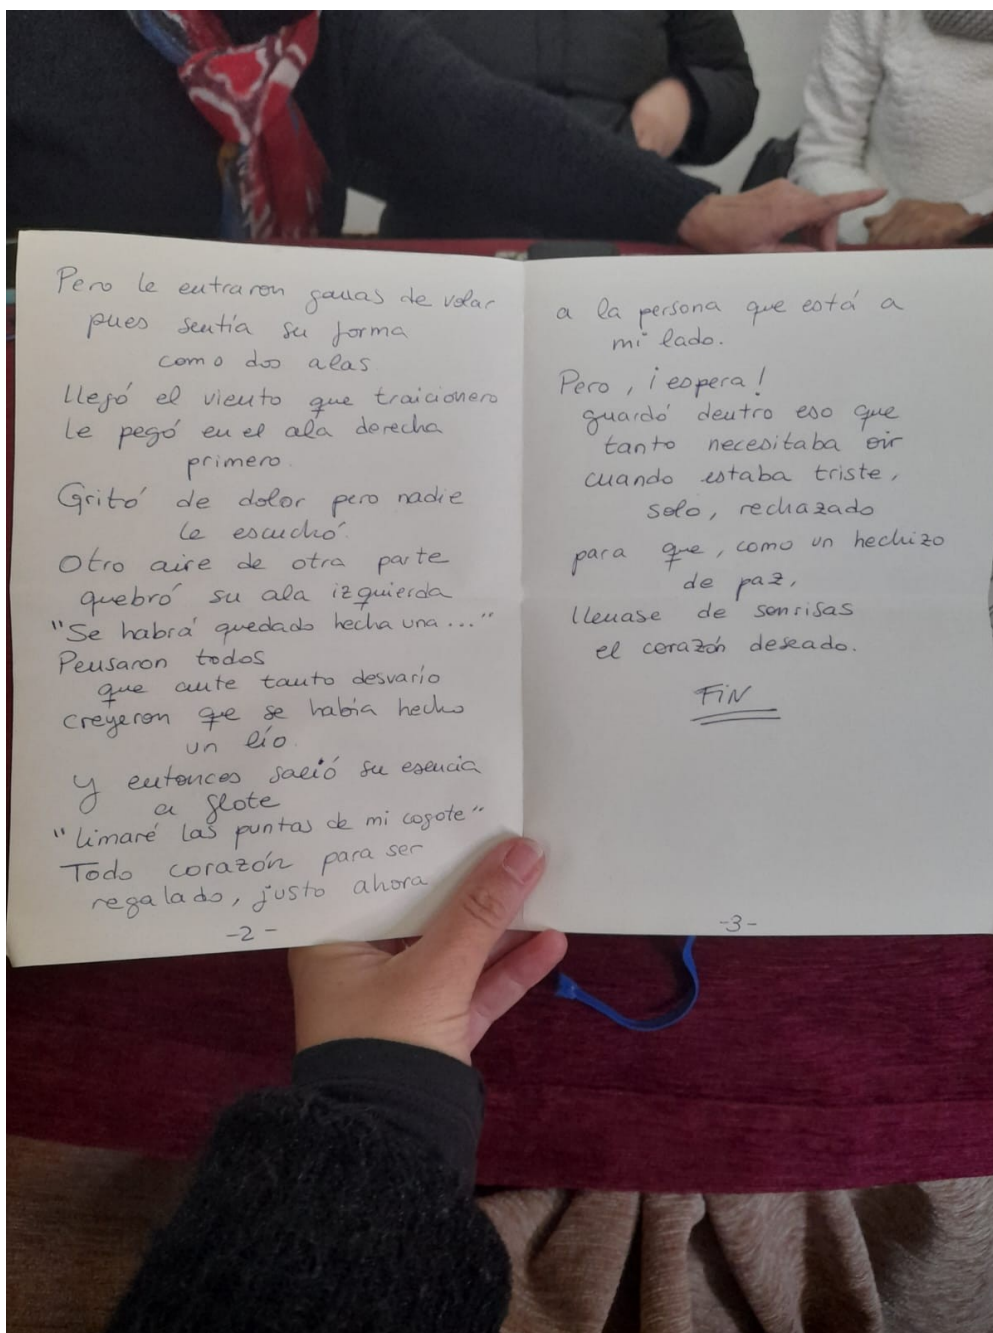 Pero le entraron ganas de volar
pues sentía su forma
como dos alas.
Llegó el viento que traicionero
le pegó en el ala derecha
primero.
Gritó de dolor pero nadie
le escuchó.
Otro aire de otra parte
quebró su ala izquierda
"Se habrá quedado hecha una..."
Pensaron todos
que ante tanto desvarío
creyeron que se había hecho
un lío.
Y entonces salió su esencia
a flote
"Limaré las puntas de mi cogote"
Todo corazón para ser
regalado, justo ahora
-2-
a la persona que está a
mi lado.
Pero, ¡espera!
guardó dentro eso que
tanto necesitaba oír
cuando estaba triste,
solo, rechazado
para que, como un hechizo
de paz,
llenase de sonrisas
el corazón deseado.
FIN
-3-